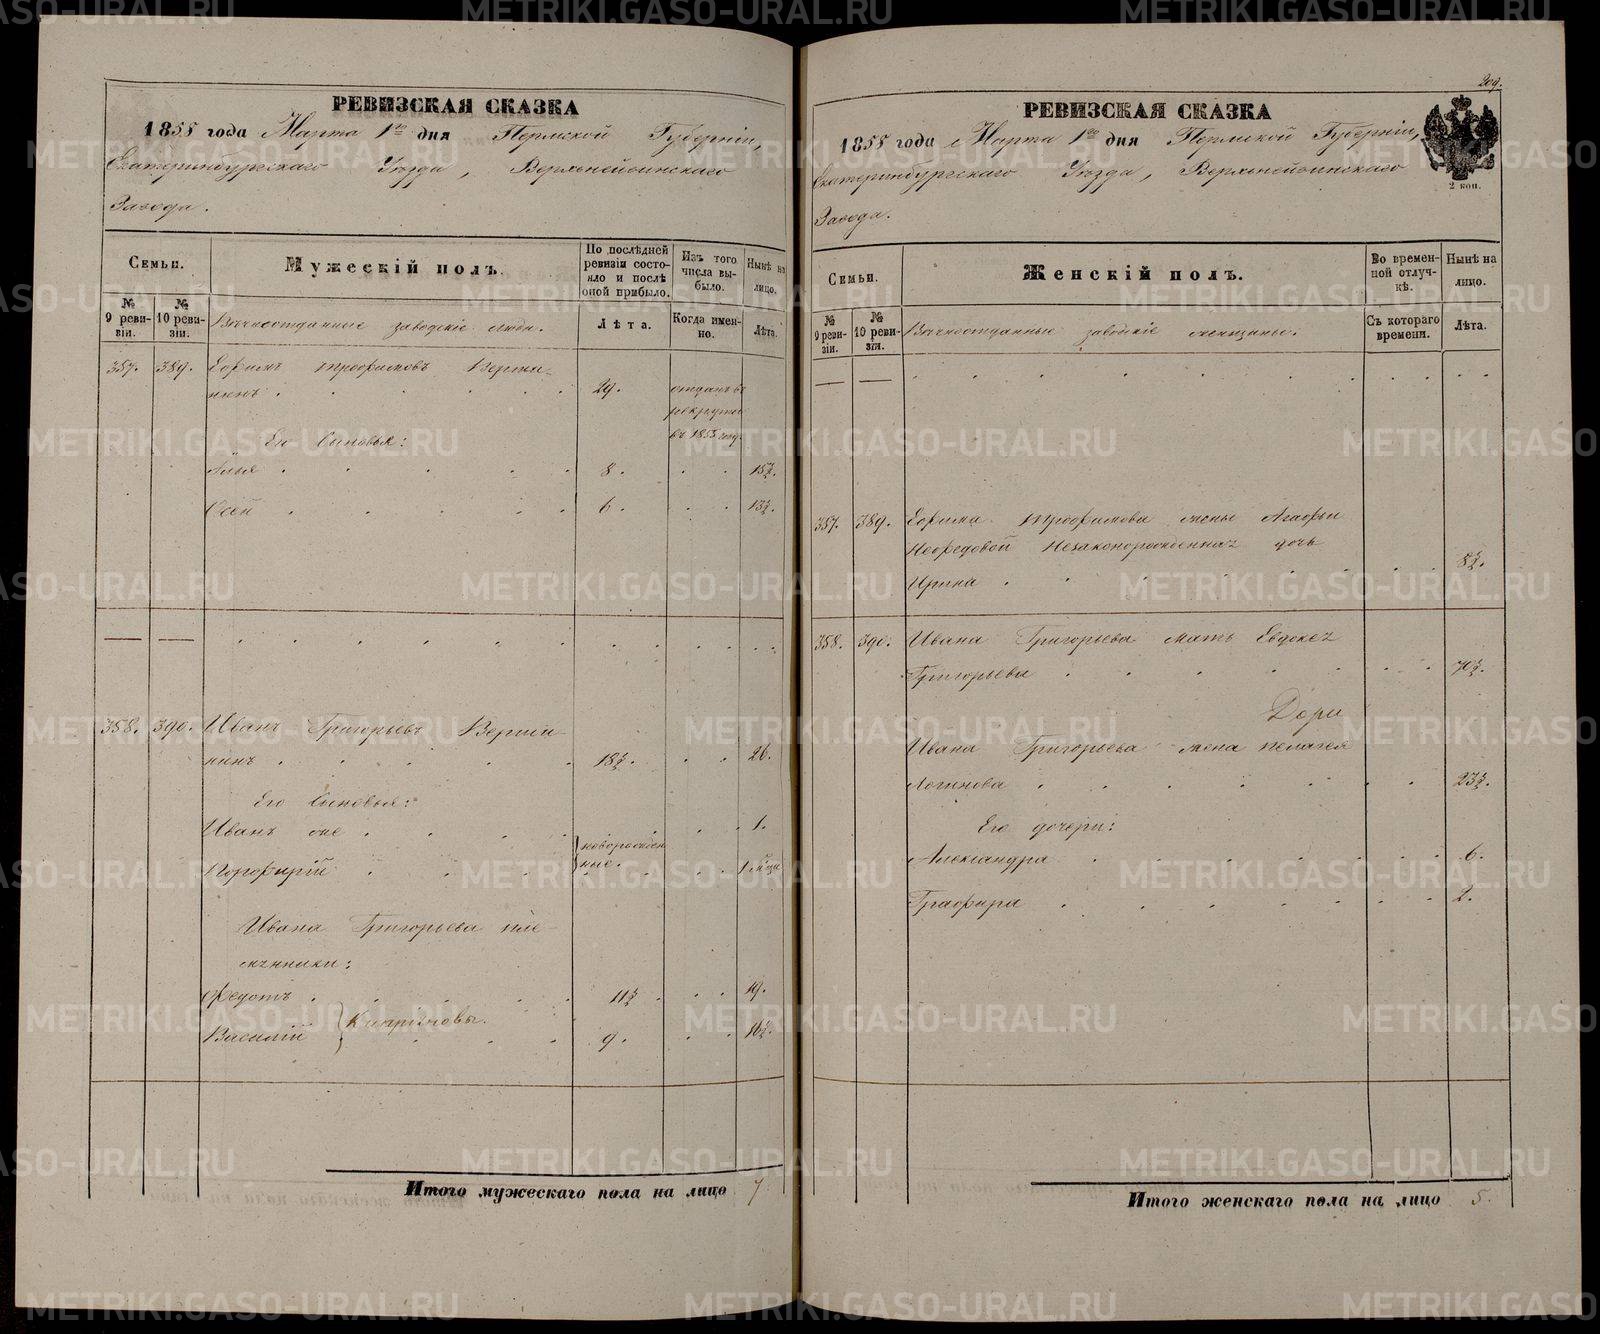 РЕВИЗСКАЯ СКАЗКА
1855 года Марта 1го дня Пермской Губерніи,
Екатеринбургскаго Уѣзда, Верхнейвинскаго
Завода.
Семьи.
Мужескій полъ.
По послѣдней ревизіи состояло и послѣ оной прибыло.
Изъ того числа выбыло.
Нынѣ на лицо.
№ 9 ревизіи.
№ 10 ревизіи.
Вѣчноотданные заводскіе люди.
Лѣта.
Когда именно.
Лѣта.
357. 389. Ефимъ Трофимовъ
29. отданъ въ
рекруты
Его Сыновья: въ 1853 году
Илья 8. 15½.
6. 13½.
358. 390. Иванъ Григорьевъ
18½. 26.
Его Сыновья:
Иванъ 1.
новорожден
ные.
Порфирій
Ивана Григорьева пле-
мянники:
Федотъ 11½. 19.
Василій 9. 16½.
Итого мужескаго пола на лицо 7
209.
РЕВИЗСКАЯ СКАЗКА
1855 года Марта 1го дня Пермской Губерніи,
Екатеринбургскаго Уѣзда, Верхнейвинскаго
Завода.
2 коп.
Семьи.
Женскій полъ.
Во временной отлучкѣ.
Нынѣ на лицо.
№ 9 ревизіи.
№ 10 ревизіи.
Вѣчноотданные заводскіе женщины.
Съ котораго времени.
Лѣта.
357. 389. Ефима Трофимова жены Агафьи
Нефедовой Незаконорожденная дочь
Ирина 8½.
358. 390. Ивана Григорьева мать Евдокея
Григорьева 70½.
Ивана Григорьева жена Пелагея
Логинова 23½.
Его дочери:
Александра 6.
Глафира 2.
Итого женскаго пола на лицо 5.
METRIKI.GASO-URAL.RU